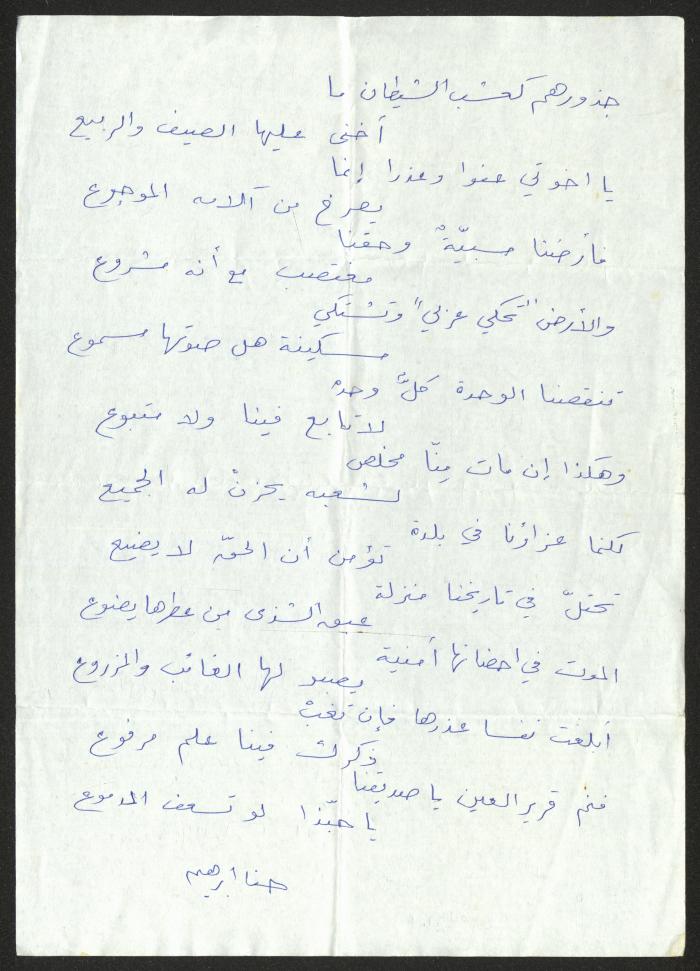 جذورهم كعشب الشيطان ما
أخنى عليها الصيف والربيع
يا اخوتي عفوا وعذرا إنما
يصرخ من آلامه الموجوع
فأرضنا مسبيّةٌ وحقنا
مغتصب مع أنه مشروع
والأرض "تحكي عربي" وتشتكي
مسكينة هل صوتها مسموع
تنقصنا الوحدة كلٌّ وحدهُ
لا تابع فينا ولا متبوع
وهكذا إن مات مِنّا مخلص
لشعبه يحزنْ له الجميع
لكنما عزاؤنا في بلدة
تؤمن أن الحقّ لا يضيع
تحتلّ في تاريخنا منزلة
عبق الشذى من عطرها يضوع
الموت في احضانها أمنية
يصبو لها الغائب والمزروع
أبلغت نفسا عذرها فإن تغبْ
ذكرك فينا علم مرفوع
فنم قرير العين يا صديقنا
يا حبّذا لو تسعف الدموع
حنا ابرهيم